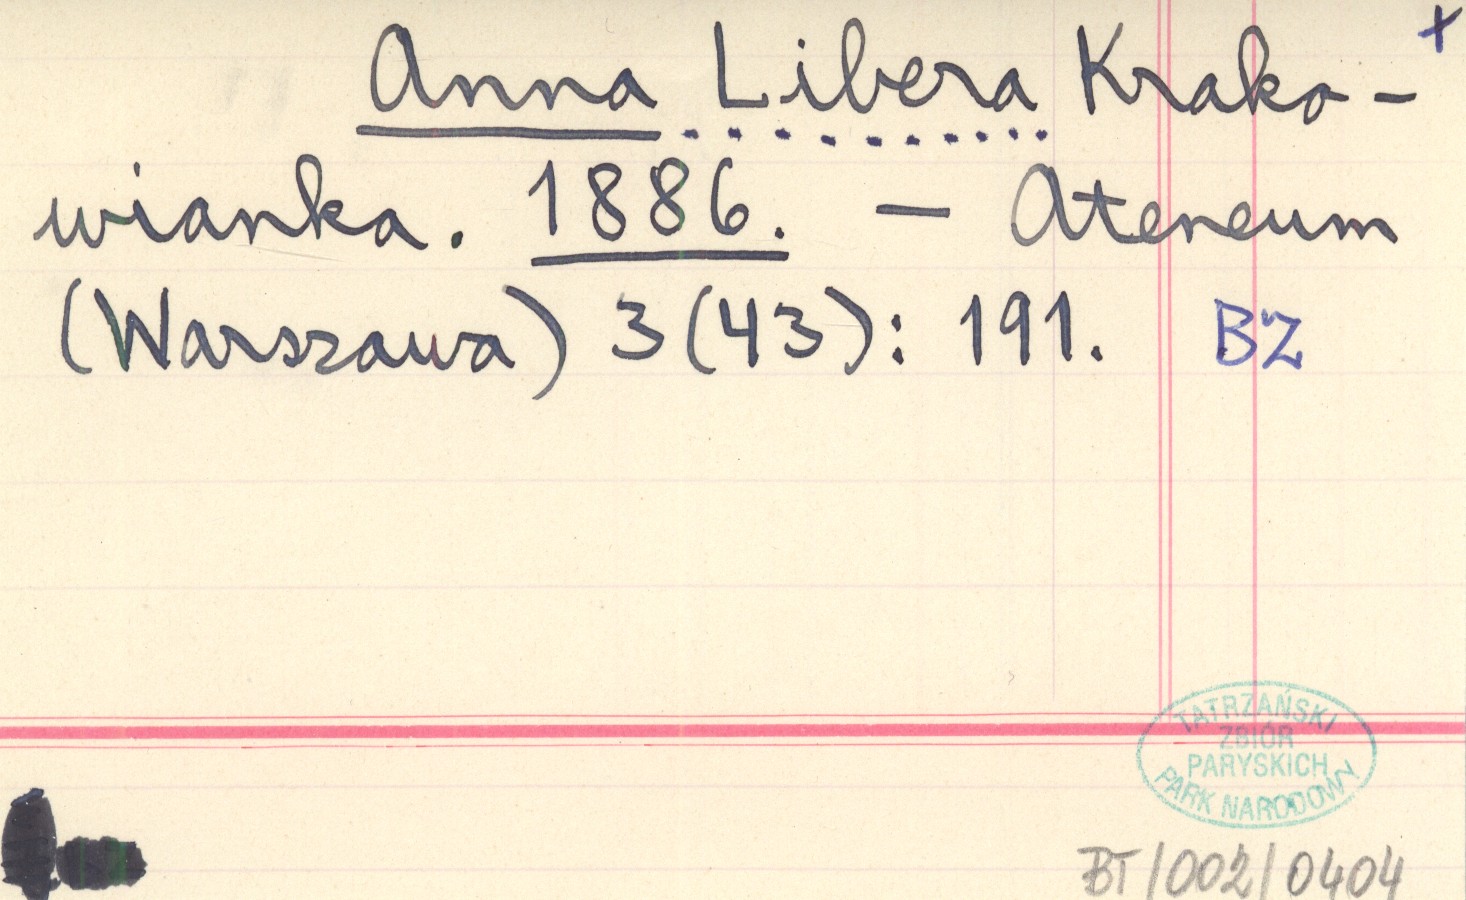 +
Anna Libera Krako-
wianka. 1886. — Ateneum
(Warszawa) 3(43): 191. BZ
TATRZAŃSKI
ZBIÓR
PARYSKICH
PARK NARODOWY
BT/002/0404